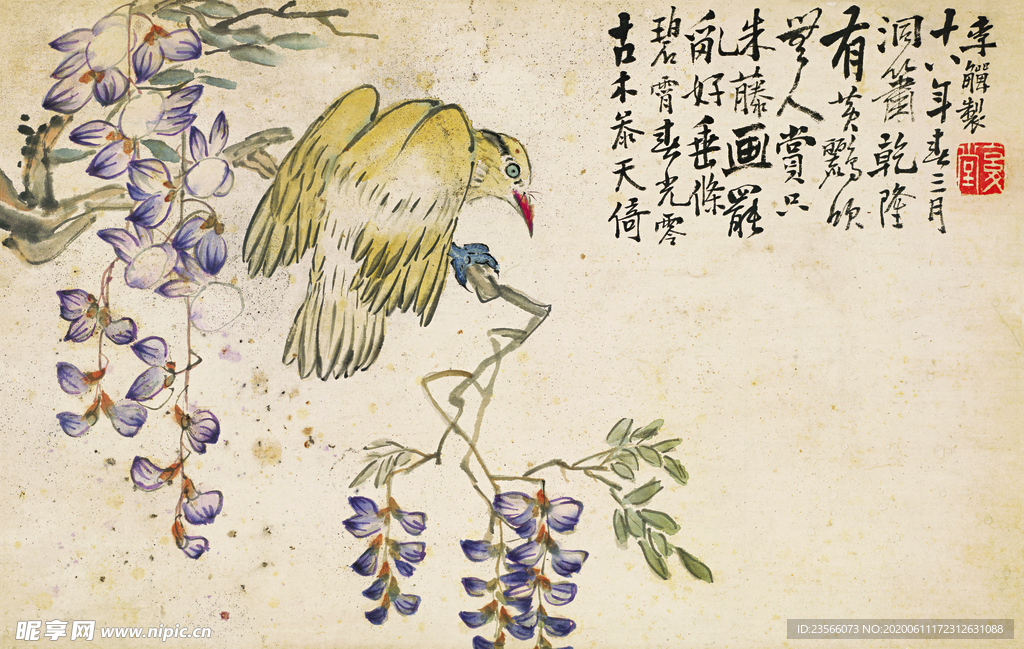 古木參天倚
碧霄春光零
亂好垂條
朱藤画罷
無人賞只
有黃鸝頌
洞簫乾隆
十八年春三月
李觶製
昵享网 www.nipic.cn
ID:23566073 NO:20200611172312631088